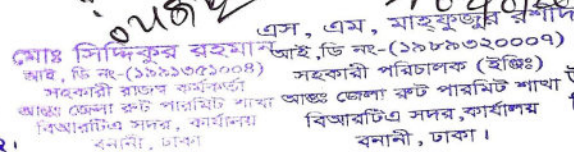 মোঃ সিদ্দিকুর রহমান
আই, ডি নং-(১৯৯১৩৫১০০৪)
সহকারী রাজস্ব কর্মকর্তা
আন্তঃ জেলা রুট পারমিট শাখা
বিআরটিএ সদর, কার্যালয়
বনানী, ঢাকা
এস, এম, মাহফুজুর রশীদ
আই,ডি নং-(১৯৮৯৩২০০০৭)
সহকারী পরিচালক (ইঞ্জিঃ)
আন্তঃ জেলা রুট পারমিট শাখা
বিআরটিএ সদর,কার্যালয়
বনানী, ঢাকা।